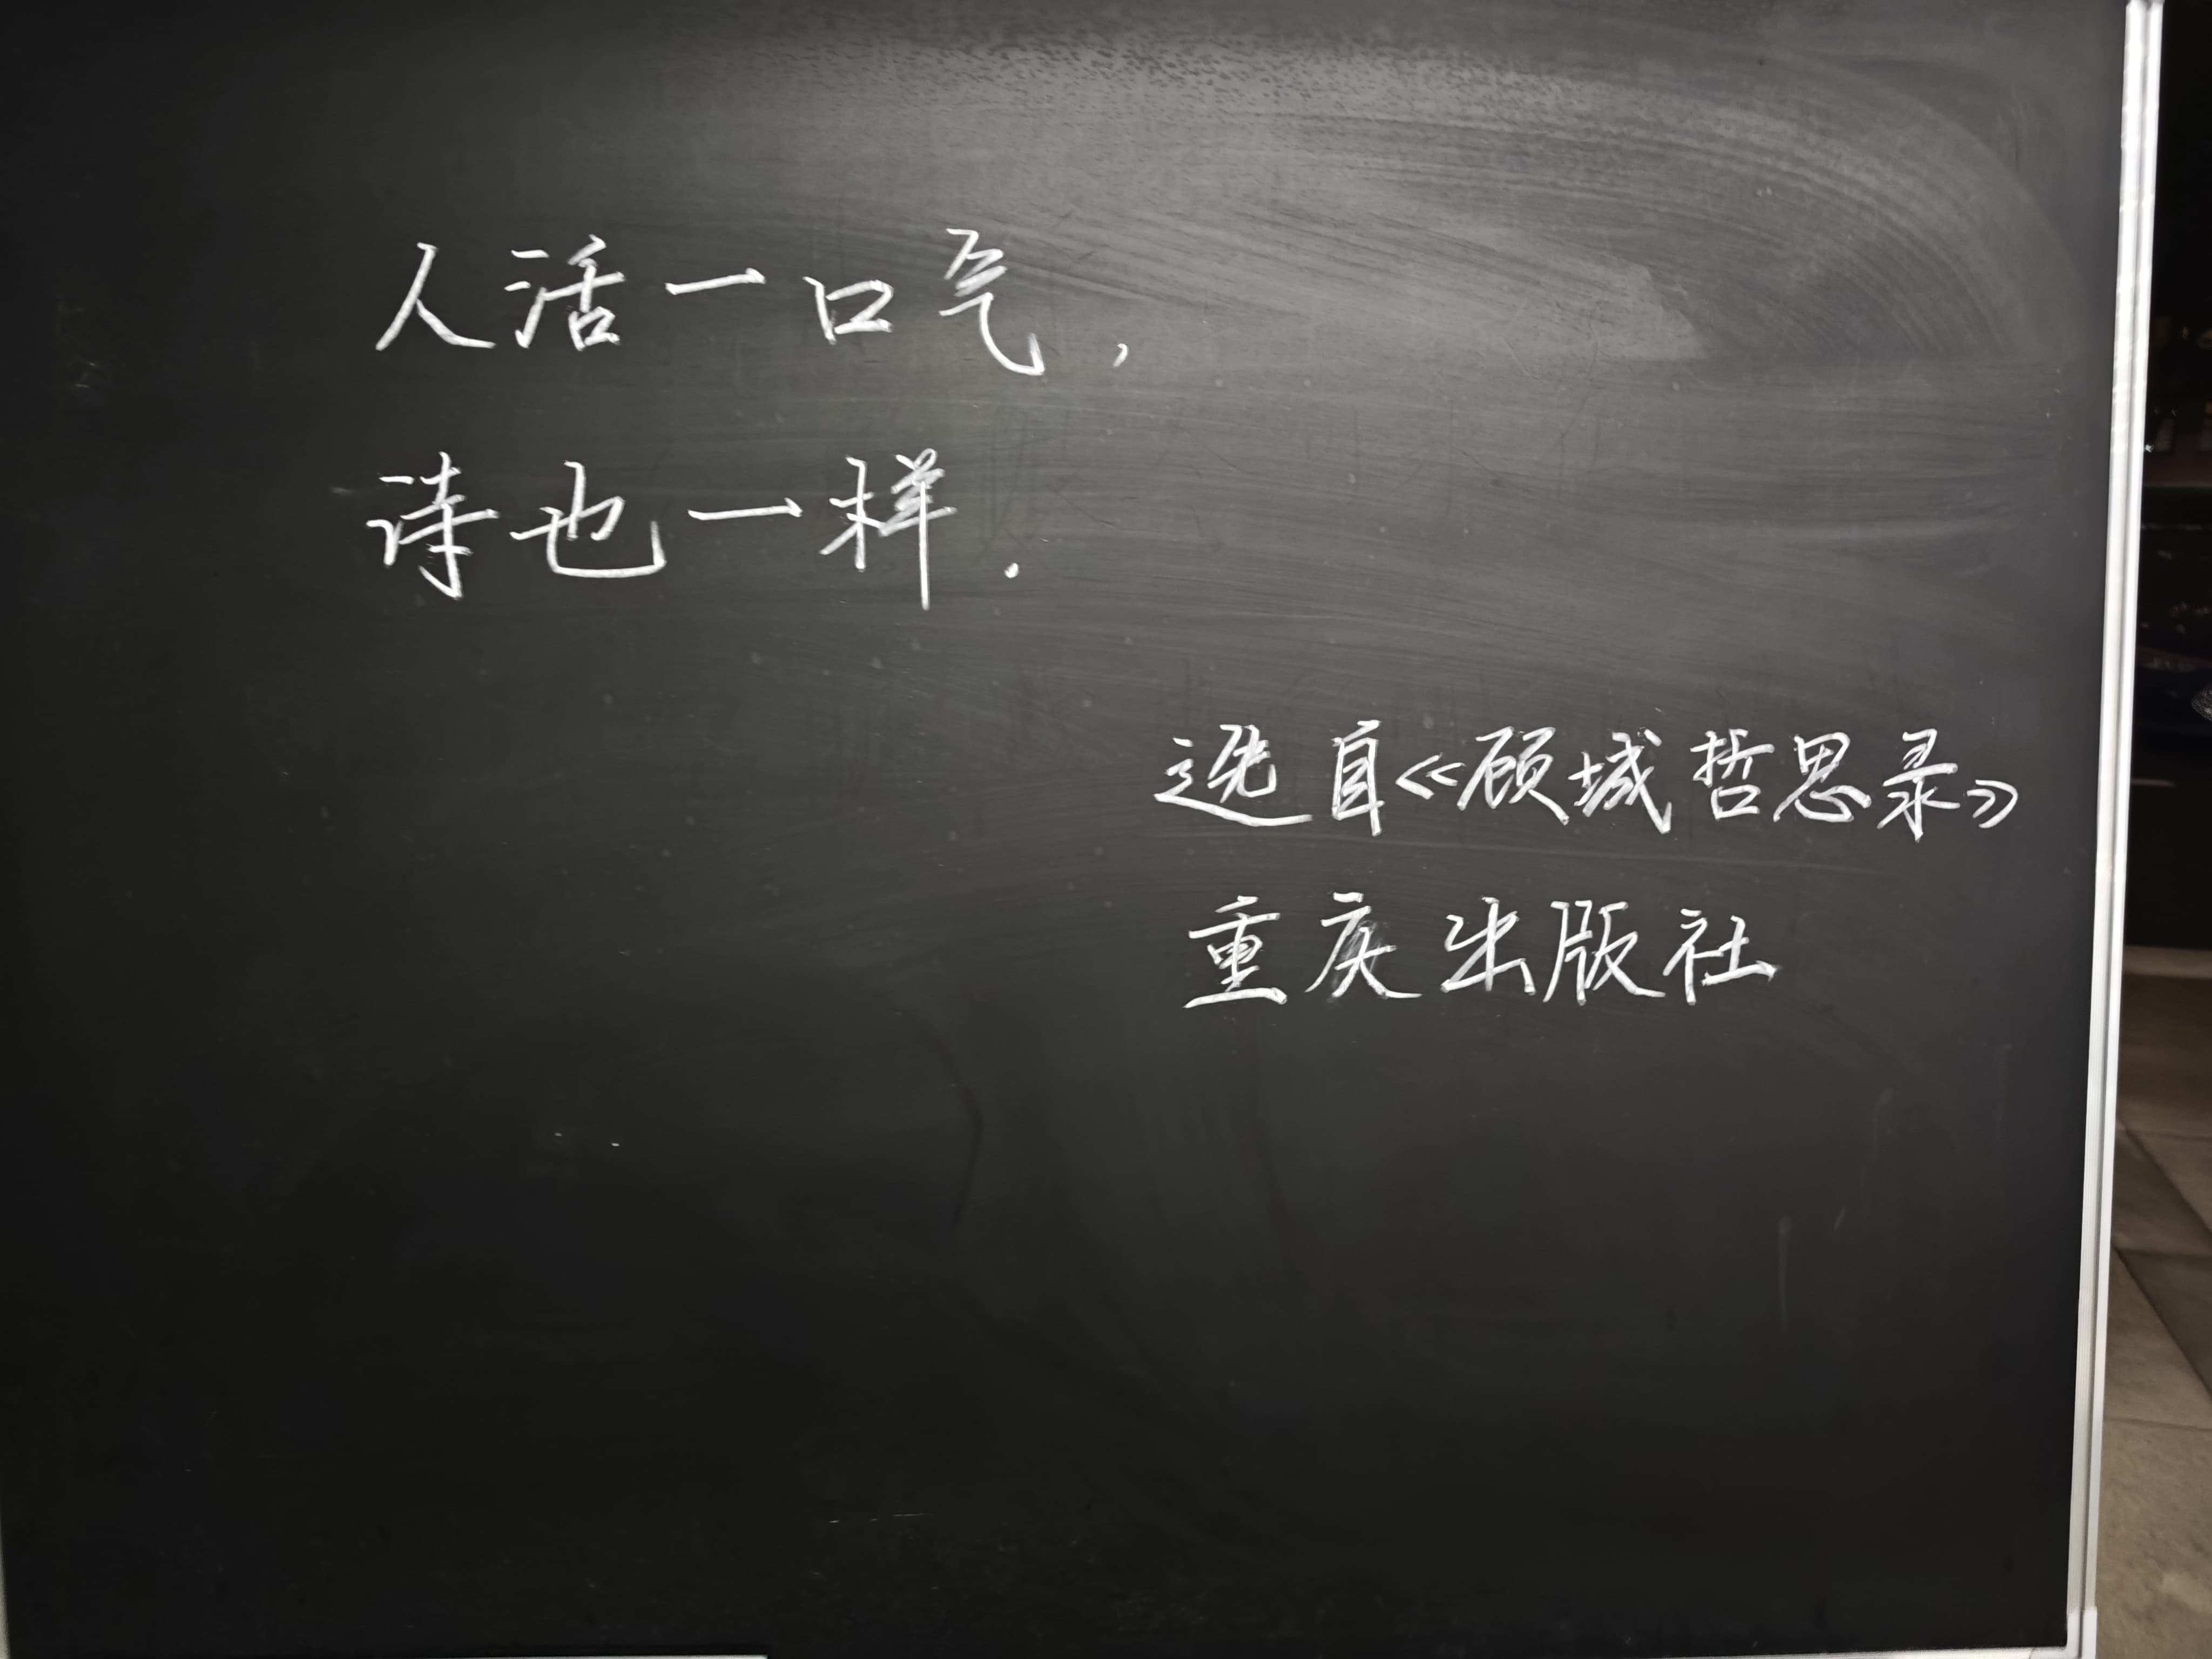 人活一口气，
诗也一样.
选自《顾城哲思录》
重庆出版社